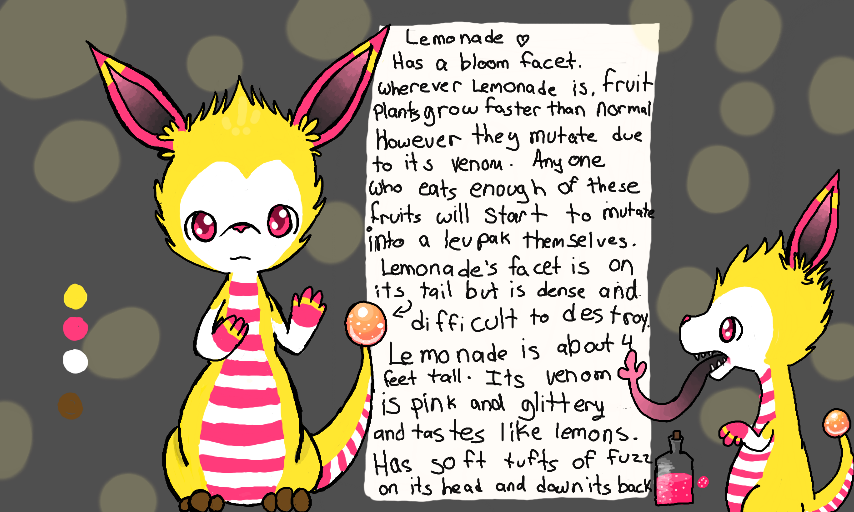 Lemonade ♡
Has a bloom facet.
Wherever Lemonade is, fruit
Plants grow faster than normal
However they mutate due
to its venom. Any one
who eats enough of these
fruits will start to mutate
into a levpak themselves.
Lemonade's facet is on
its tail but is dense and
difficult to destroy.
Lemonade is about 4
feet tall. Its venom
is pink and glittery
and tastes like lemons.
Has soft tufts of fuzz
on its head and down its back